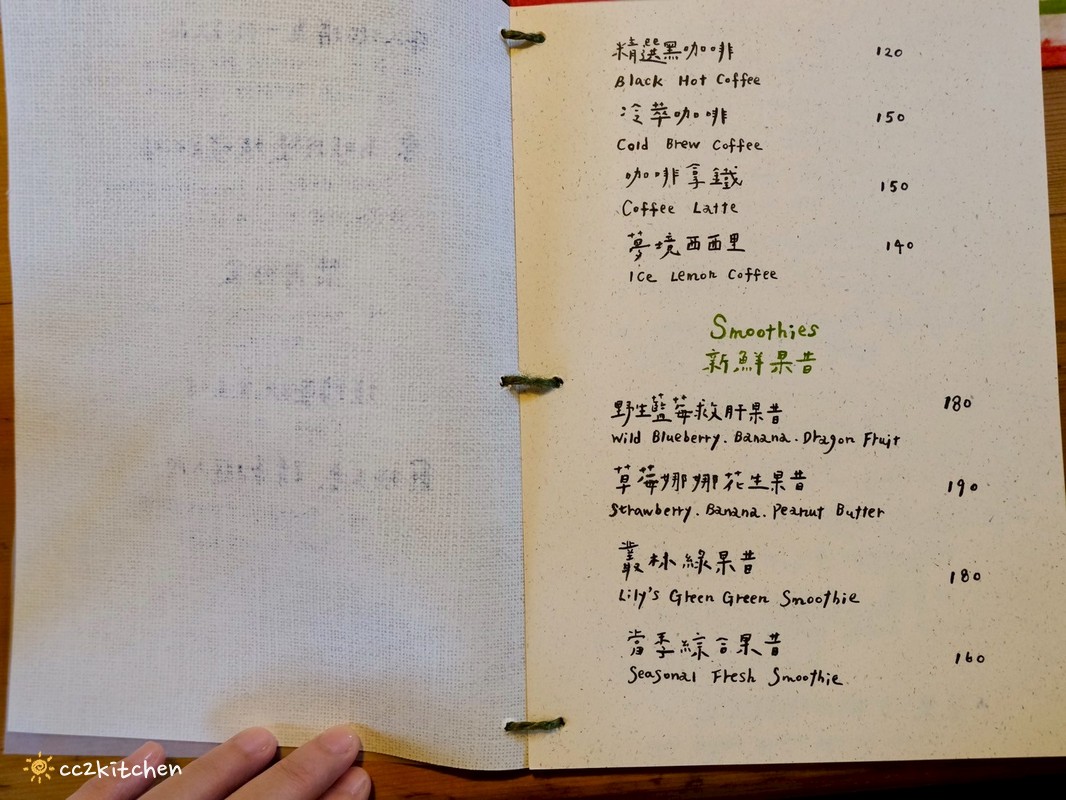 精選黑咖啡 120
Black Hot Coffee
冷萃咖啡 150
Cold Brew Coffee
咖啡拿鐵 150
Coffee Latte
夢境西西里 140
Ice Lemon Coffee
Smoothies
新鮮果昔
野生藍莓救肝果昔 180
Wild Blueberry. Banana. Dragon Fruit
草莓娜娜花生果昔 190
Strawberry. Banana. Peanut Butter
叢林綠果昔 180
Lily's Green Green Smoothie
當季綜合果昔 160
Seasonal Fresh Smoothie
cc2kitchen